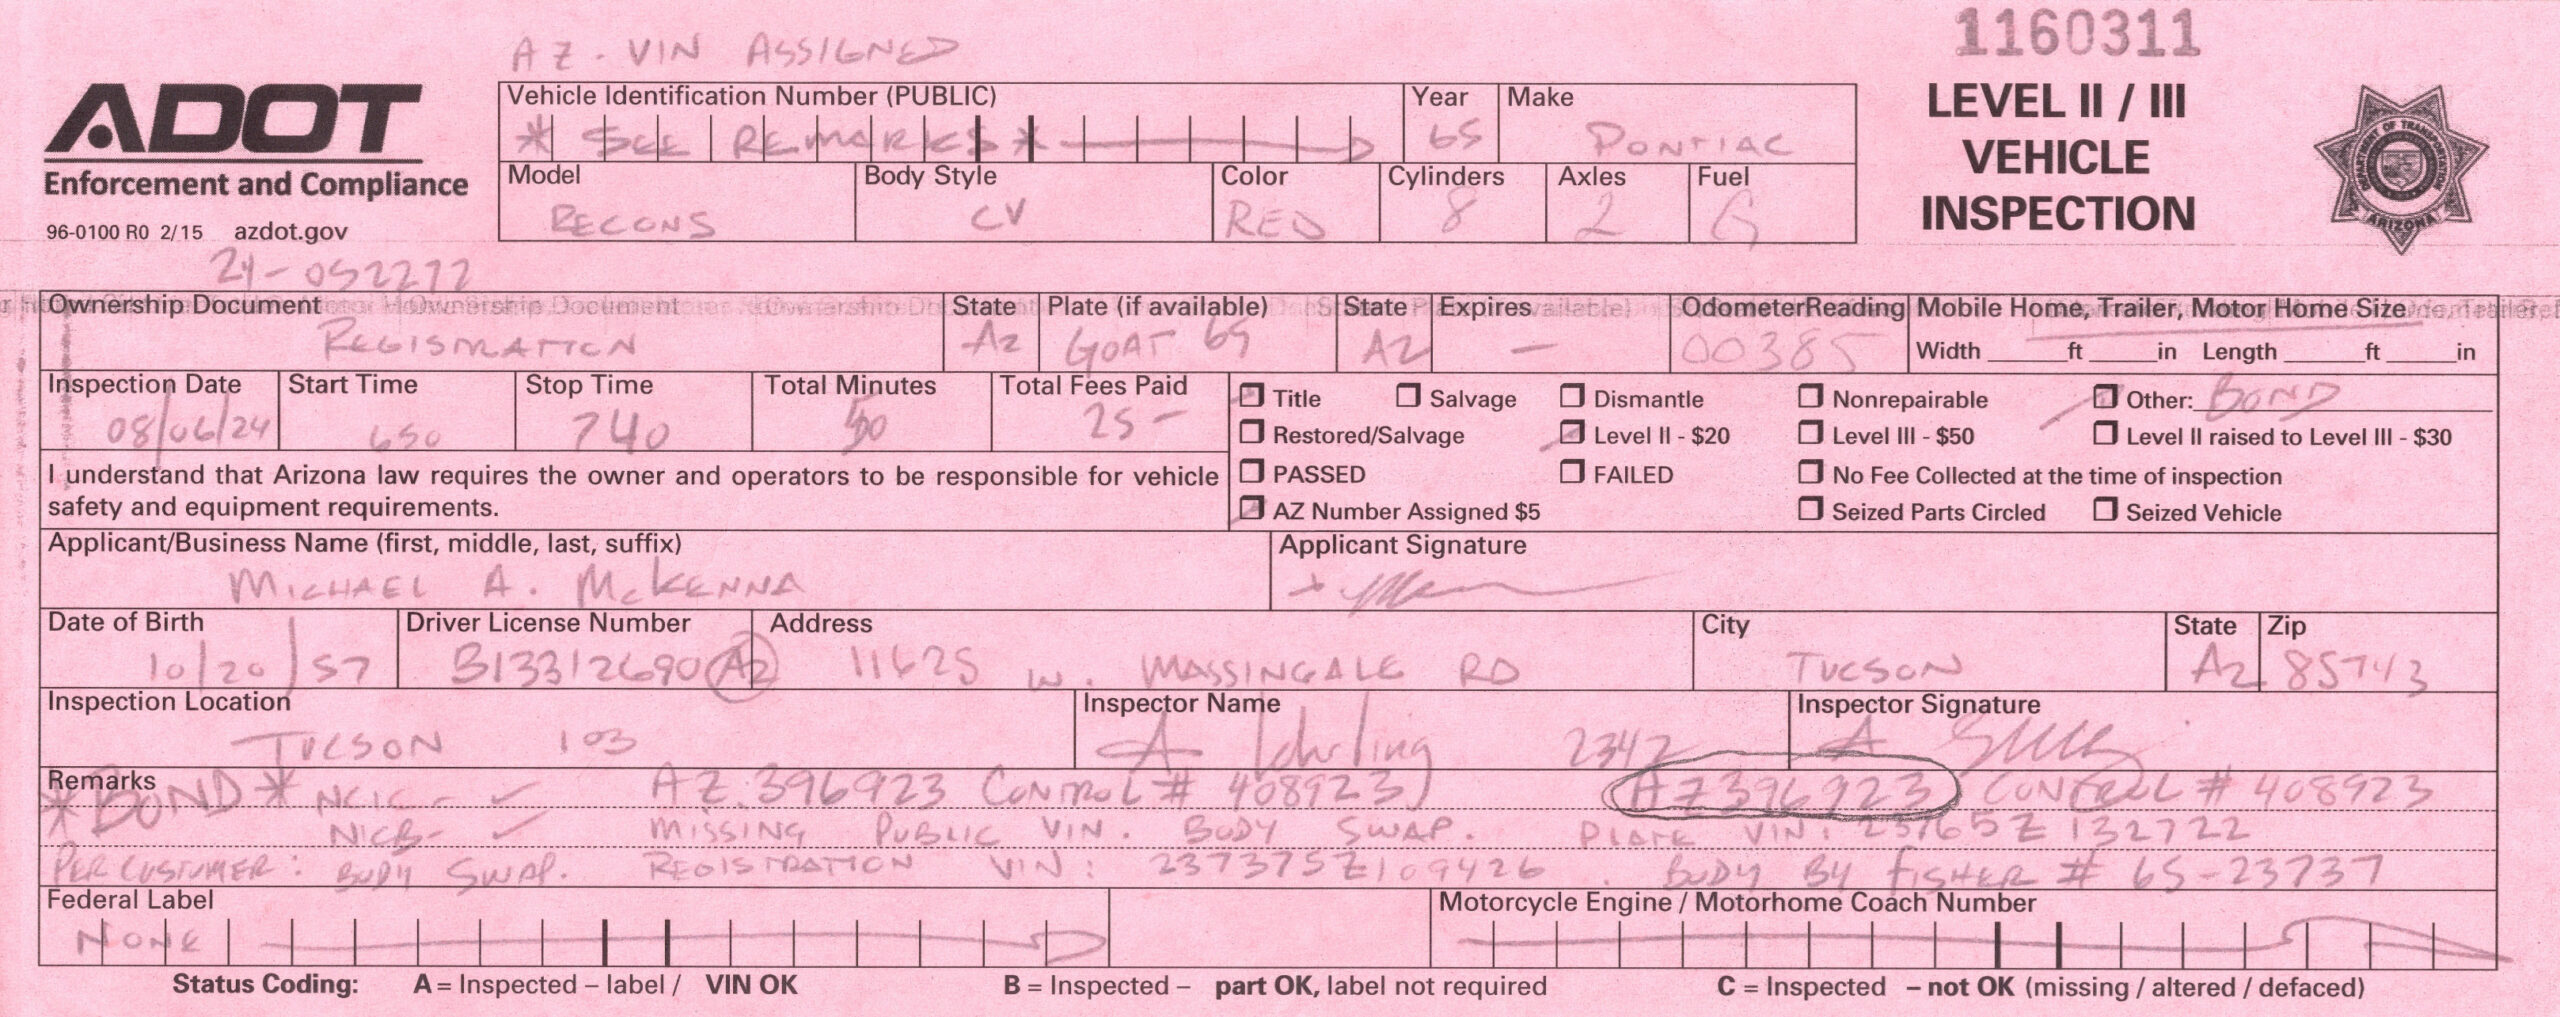 AZ. VIN ASSIGNED
1160311
ADOT
Enforcement and Compliance
96-0100 R0 2/15 azdot.gov
LEVEL II / III
VEHICLE
INSPECTION
DEPARTMENT OF TRANSPORTATION
ARIZONA
Vehicle Identification Number (PUBLIC)
* SEE REMARKS *
Year
65
Make
PONTIAC
Model
RECONS
Body Style
CV
Color
RED
Cylinders
8
Axles
2
Fuel
G
24-052272
Ownership Document
REGISTRATION
State
AZ
Plate (if available)
GOAT 65
State
AZ
Expires
—
Odometer Reading
00385
Mobile Home, Trailer, Motor Home Size
Width ft in Length ft in
Inspection Date
08/06/24
Start Time
650
Stop Time
740
Total Minutes
50
Total Fees Paid
25-
Title Salvage Dismantle Nonrepairable Other: BOND
Restored/Salvage Level II - $20 Level III - $50 Level II raised to Level III - $30
PASSED FAILED No Fee Collected at the time of inspection
AZ Number Assigned $5 Seized Parts Circled Seized Vehicle
I understand that Arizona law requires the owner and operators to be responsible for vehicle
safety and equipment requirements.
Applicant/Business Name (first, middle, last, suffix)
MICHAEL A. McKENNA
Applicant Signature
Date of Birth
10/20/57
Driver License Number
B13312690 AZ
Address
11625 W. MASSINGALE RD
City
TUCSON
State
AZ
Zip
85743
Inspection Location
TUCSON 103
Inspector Name
2342
Inspector Signature
Remarks
*BOND* NCIC- ✓ AZ.396923 CONTROL # 408923 AZ396923 CONTROL # 408923
NICB- ✓ MISSING PUBLIC VIN. BODY SWAP. PLATE VIN:
PER CUSTOMER: BODY SWAP. REGISTRATION VIN: 237375Z109426. BODY BY FISHER # 65-23737
Federal Label
NONE
Motorcycle Engine / Motorhome Coach Number
Status Coding: A = Inspected – label / VIN OK B = Inspected – part OK, label not required C = Inspected – not OK (missing / altered / defaced)